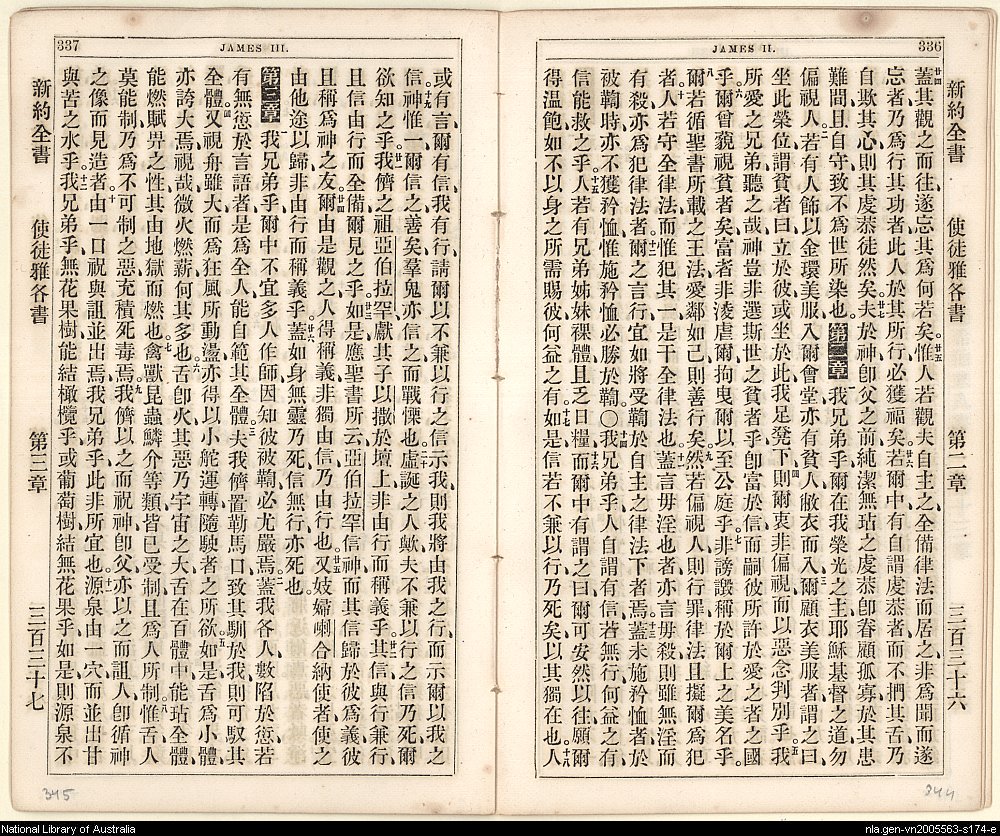 336
JAMES II.
新約全書　使徒雅各書　第二章　三百三十六
廿四蓋其觀之而往、遂忘其爲何若矣。廿五惟人若觀夫自主之全備律法而居之、非爲聞而遂
忘者、乃爲行其功者、此人於其所行必獲福矣。廿六若爾中有自謂虔恭者、而不捫其舌、乃
自欺其心、則其虔恭徒然矣。廿七夫於神卽父之前、純潔無玷之虔恭、卽眷顧孤寡於其患
難間、且自守致不爲世所染也。
第二章　一我兄弟乎、爾在我榮光之主耶穌基督之道、勿
偏視人。二若有人飾以金環美服、入爾會堂、亦有貧人敝衣而入、三爾顧衣美服者、謂之曰、
坐此榮位、謂貧者曰、立於彼、或坐於此我足凳下、四則爾衷非偏視、而以惡念判別乎。五我
所愛之兄弟聽之哉、神豈非選斯世之貧者乎、卽富於信、而嗣彼所許於愛之者之國
乎。六爾曾藐視貧者矣、富者非淩虐爾、拘曳爾以至公庭乎。七非謗讟稱於爾上之美名乎。
八爾若循聖書所載之王法、愛鄰如己、則善行矣。九然若偏視人、則行罪、律法且擬爾爲犯
者。十人若守全律法、而惟犯其一、是干全律法也。十一蓋言毋淫也者、亦言毋殺、則雖無淫而
有殺、亦爲犯律法者。十二爾之言行、宜如將受鞫於自主之律法下者焉。十三蓋未施矜恤者、於
被鞫時、亦不獲矜恤、惟施矜恤、必勝於鞫。〇十四我兄弟乎、人自謂有信、若無行、何益之有、
信能救之乎。十五人若有兄弟姊妹、裸體且乏日糧、十六而爾中有謂之曰、爾可安然以往、願爾
得温飽、如不以身之所需賜彼、何益之有。十七如是信若不兼以行、乃死矣、以其獨在也。十八人
337
JAMES III.
或有言、爾有信、我有行、請爾以不兼以行之信示我、則我將由我之行、而示爾以我之
信。十九神惟一、爾信之善矣、羣鬼亦信之而戰慄也。二十虛誕之人歟、夫不兼以行之信乃死、爾
欲知之乎。廿一我儕之祖亞伯拉罕、獻其子以撒於壇上、非由行而稱義乎。廿二其信與行兼行、
且信由行而全備、爾見之乎。廿三如是應聖書所云、亞伯拉罕信神、而其信歸於彼爲義、彼
且稱爲神之友。廿四爾由是觀之、人得稱義、非獨由信、乃由行也。廿五又妓婦喇合納使者、使之
由他途以歸、非由行而稱義乎。廿六蓋如身無靈乃死、信無行亦死也。
第三章　一我兄弟乎、爾中不宜多人作師、因知彼被鞫必尤嚴焉。二蓋我各人數陷於愆、若
有無愆於言語者、是爲全人、能自範其全體。三夫我儕置勒馬口、致其馴於我、則可馭其
全體。四又視舟雖大、而爲狂風所動盪、亦得以小舵運轉、隨駛者之所欲。五如是舌爲小體、
亦誇大焉、視哉、微火燃薪何其多也。六舌卽火、其惡乃宇宙之大、舌在百體中、能玷全體、
能燃賦畀之性、其由地獄而燃也。七禽獸昆蟲鱗介等類、皆已受制、且爲人所制、八惟舌人
莫能制、乃爲不可制之惡、充積死毒焉。九我儕以之而祝神卽父、亦以之而詛人、卽循神
之像而見造者。十由一口祝與詛並出焉、我兄弟乎、此非所宜也。十一源泉由一穴、而並出甘
與苦之水乎。十二我兄弟乎、無花果樹能結橄欖乎、或葡萄樹結無花果乎、如是則源泉不
新約全書　使徒雅各書　第三章　三百三十七
345
344
National Library of Australia
nla.gen-vn2005563-s174-e